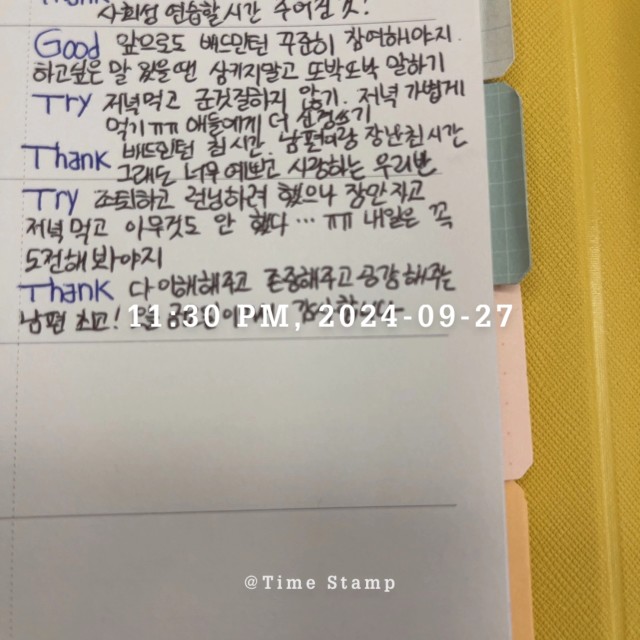 사회성 연습할 시간 주어진 것!
Good 앞으로도 배드민턴 꾸준히 참여해야지.
하고싶은 말 있을땐 삼키지말고 또박또박 말하기
Try 저녁먹고 군것질하지 않기. 저녁 가볍게
먹기ㅠㅠ 애들에게 더 신경쓰기
Thank 배드민턴 친 시간. 남편이랑 장난친 시간
그래도 너무 예쁘고 사랑하는 우리반
Try 조퇴하고 런닝하려 했으나 잠만 자고
저녁 먹고 아무것도 안 했다… ㅠㅠ 내일은 꼭
도전해 봐야지
Thank 다 이해해주고 존중해주고 공감해주는
남편 최고!
11:30 PM, 2024-09-27
@Time Stamp